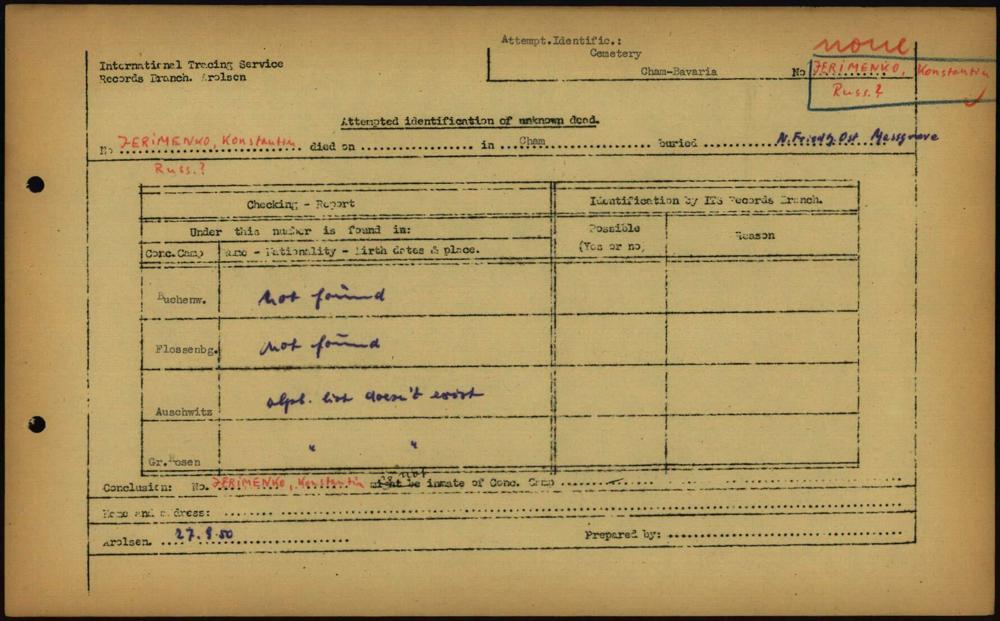 Attempt.Identific.:
Cemetery
Cham-Bavaria
none
No JERIMENKO, Konstantin
Russ.?
International Tracing Service
Records Branch. Arolsen
Attempted identification of unknown dead.
No JERIMENKO, Konstantin died on .................. in ...Cham............. buried .......... N. Friedh. Ost Massgrave
Russ.?
Checking - Report
Identification by ITS Records Branch.
Under this number is found in:
Possible
(Yes or no)
Reason
Conc.Camp
Name - Nationality - Birth dates & place.
Buchenw.
Not found
Flossenbg.
Not found
Auschwitz
alph. list doesn't exist
Gr.Rosen
" "
Conclusion: No. JERIMENKO, Konstantin might not be inmate of Conc. Camp ..........
Home and address: ..........
Arolsen. 27.9.50
Prepared by: ..........